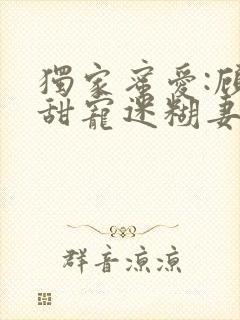 獨家蜜愛:顾
甜寵迷糊妻
群音涼涼